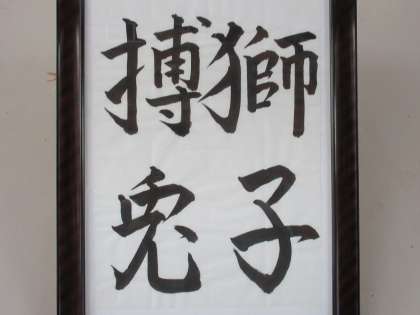 獅子
搏兎